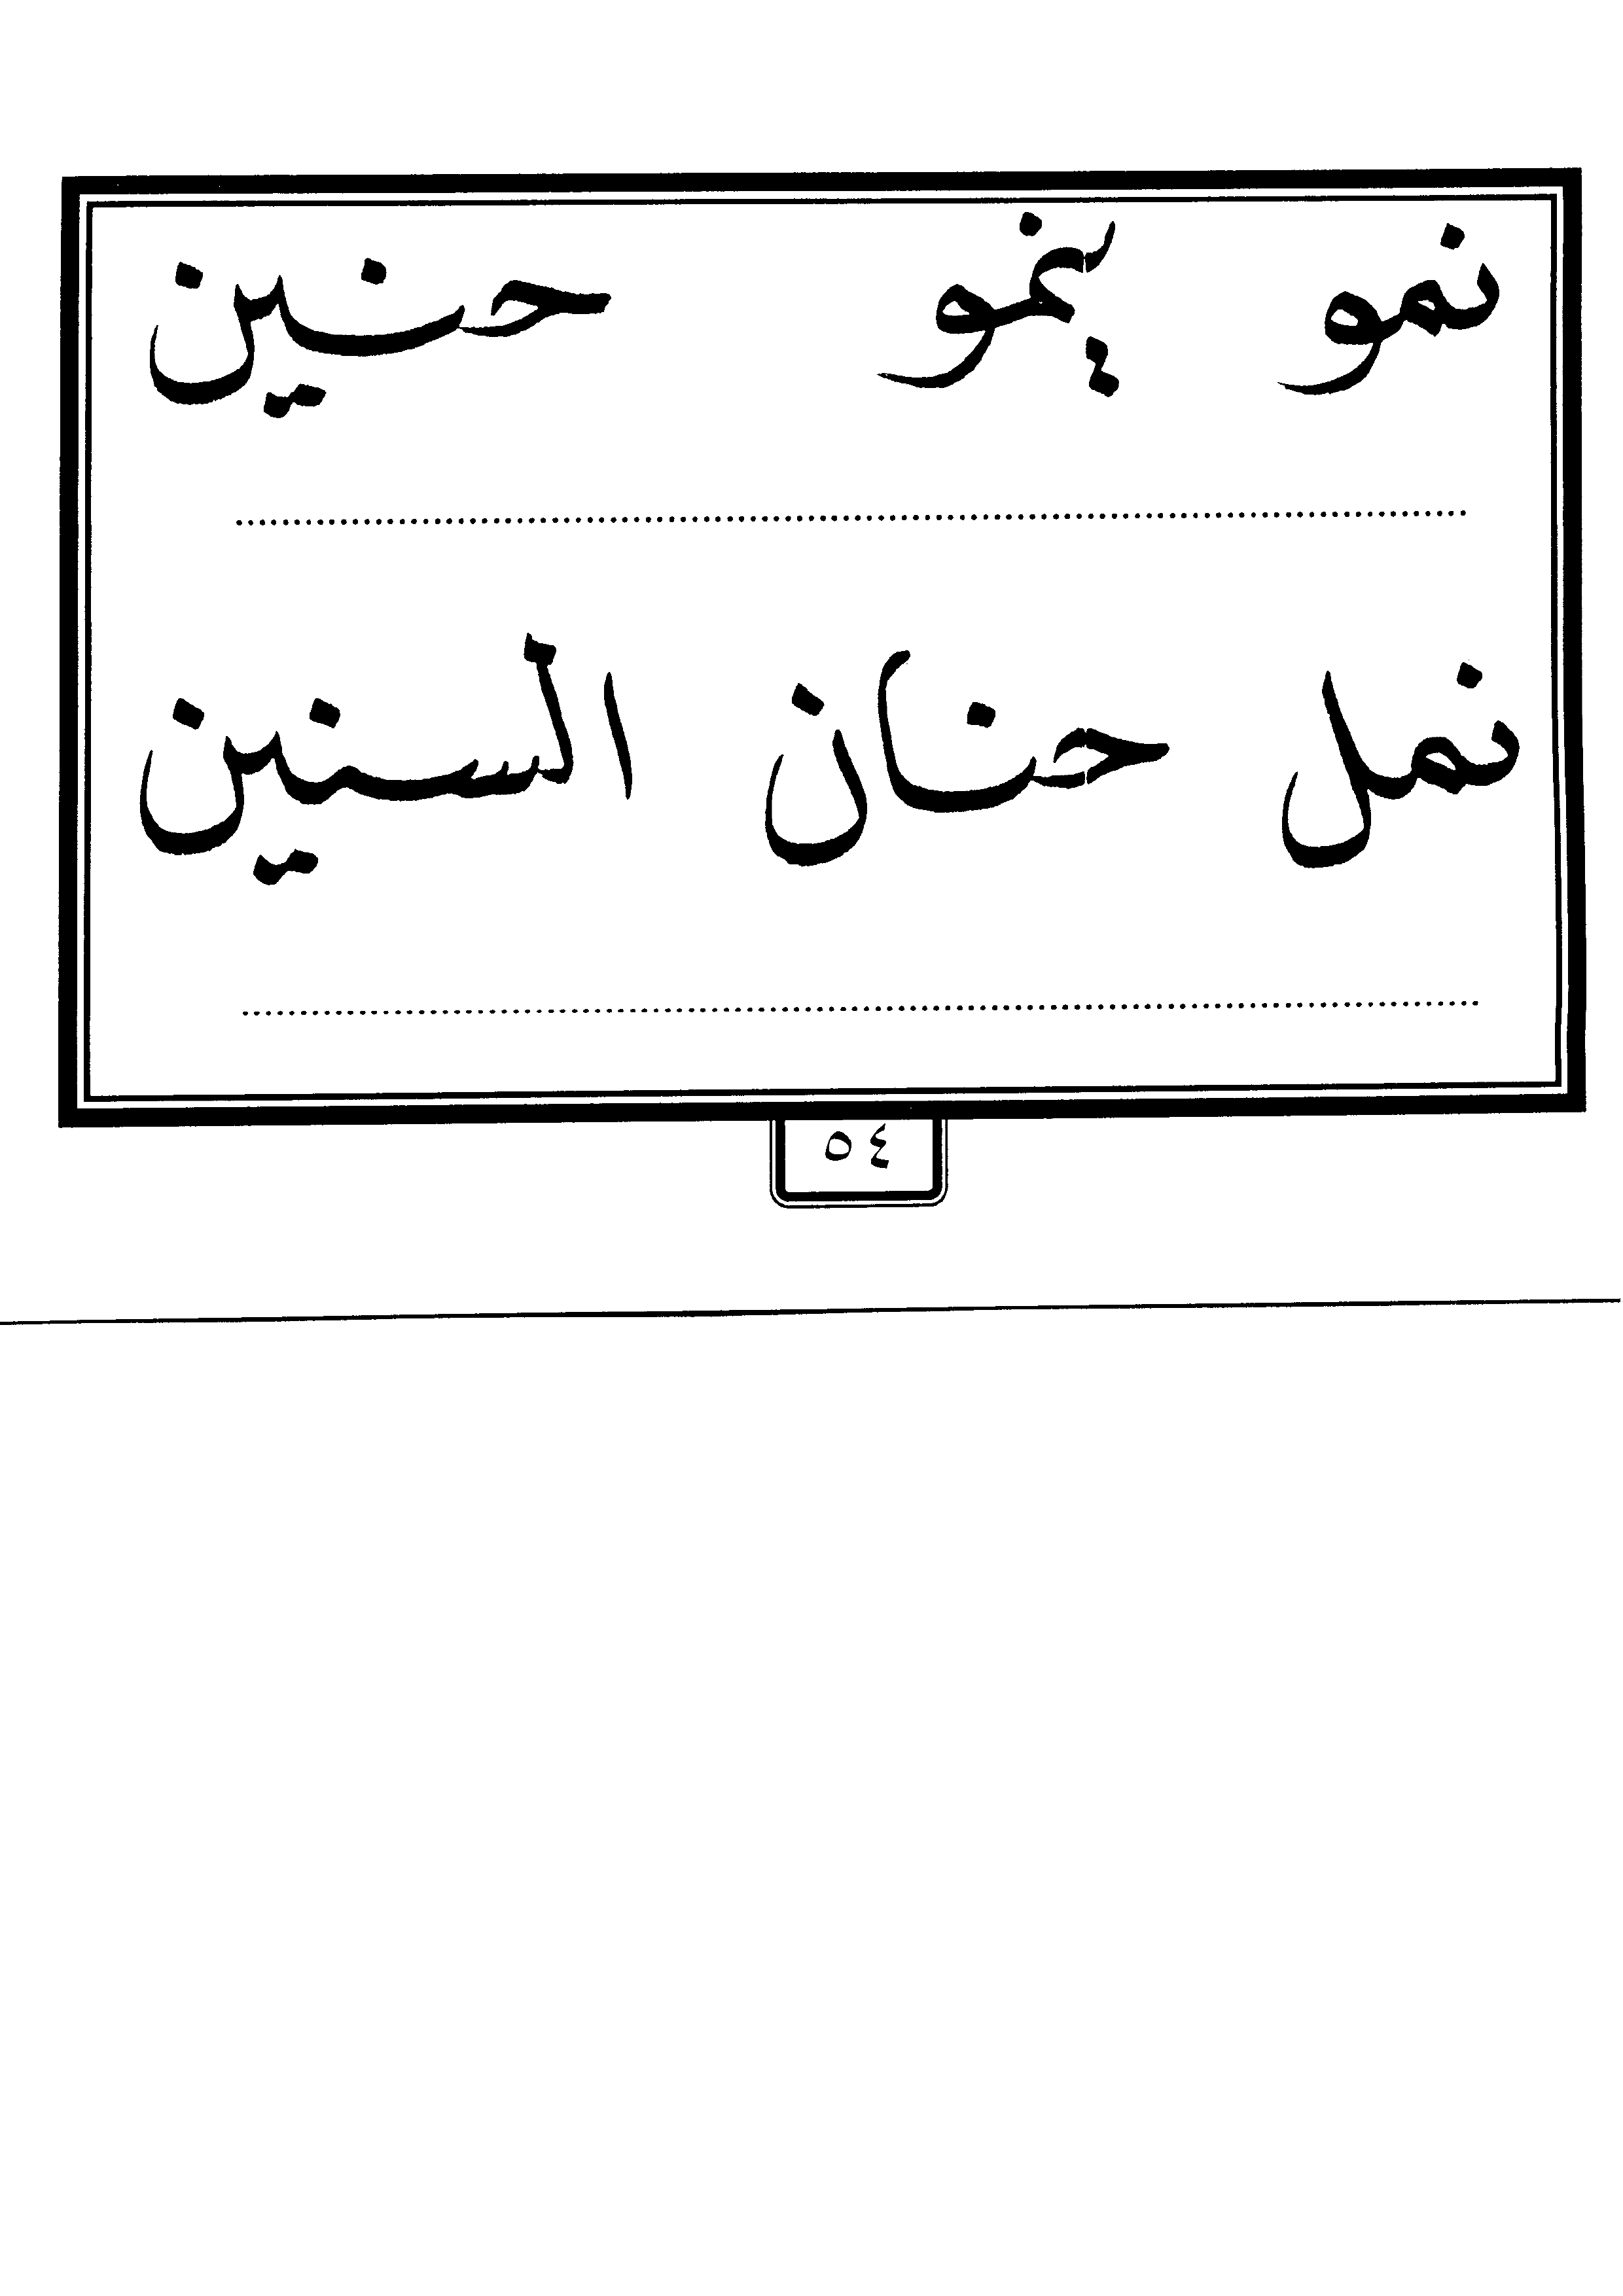 نمو ينمو حنين
نمل حنان السنين
٥٤